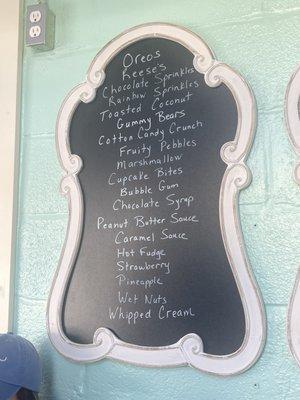 Oreos
Reese's
Chocolate Sprinkles
Rainbow Sprinkles
Toasted Coconut
Gummy Bears
Cotton Candy Crunch
Fruity Pebbles
Marshmallow
Cupcake Bites
Bubble Gum
Chocolate Syrup
Peanut Butter Sauce
Caramel Sauce
Hot Fudge
Strawberry
Pineapple
Wet Nuts
Whipped Cream